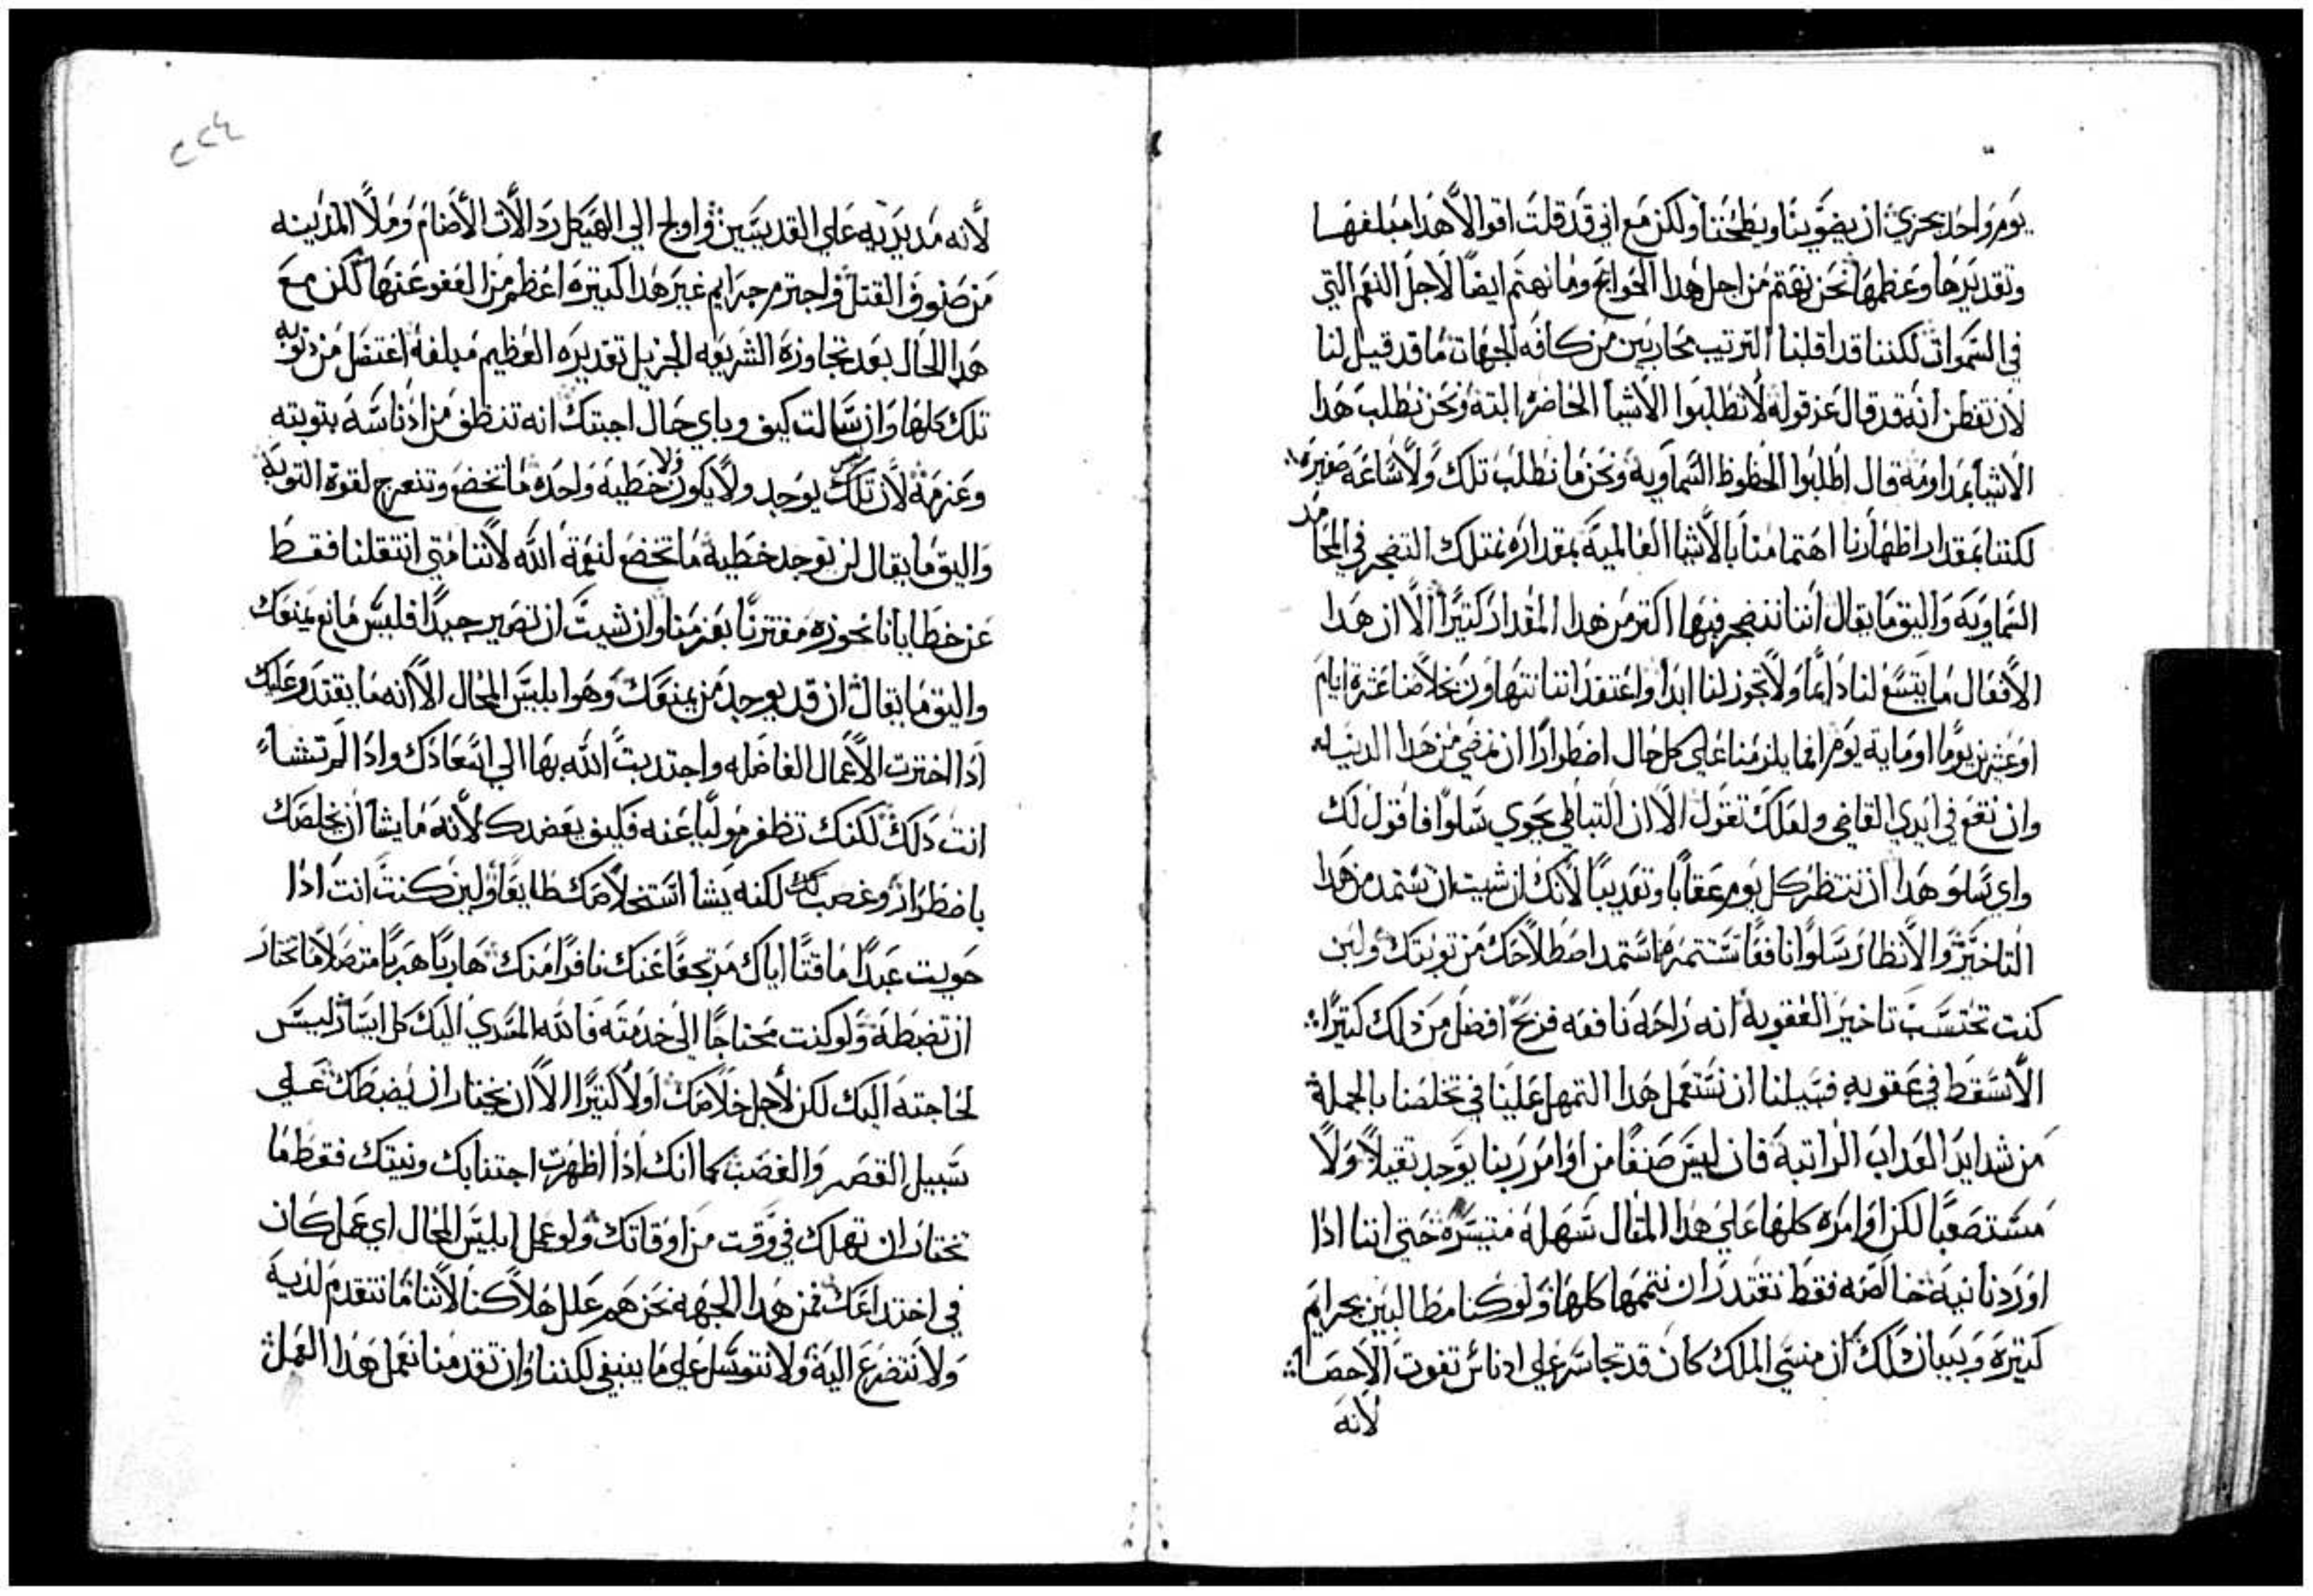 يوم واحد يجزي ان يضوينا ويطحننا ولكن مع اني قد قلت اقوالا هدا مبلغها
وتقديرها وعظمها نحن نهتم من اجل هدا الحوايج وما نهتم ايضا لاجل النعم التي
في السموات لكننا قد اقلبنا الترتيب محاربين من كافه الجهات ما قد قيل لنا
لان تفطن انه قد قال عز قوله لا تطلبوا الاشيا الحاضره البتة ونحن نطلب هدا
الاشيا بمداومة قال اطلبوا الحظوظ السماوية ونحن ما نطلب تلك ولا ساعة صغيرة
لكننا بمقدار اظهارنا اهتمامنا بالاشيا العالمية بمقداره نمتلك التضجر في المحامد
السماوية واليق ما يقال اننا نتضجر فيها اكتر من هدا المقدار كتيرا الا ان هدا
الافعال ما يتسع لنا دايما ولا تجوز لنا ابدا واعتقد اننا نتهاون بخلاصنا عشرة ايام
او عشرين يوما او ماية يوم انما يلزمنا علي كل حال اضطرارا ان نمضي من هدا الدنيا
وان نقع في ايدي القاضي ولعلك تقول الا ان التباطي يحوي سلوا فاقول لك
واي سلو هدا ان ننتظر كل يوم عقابا وتعديبا لانك ان شيت ان تستمد من هدا
التاخير والانتظار سلوا نافعا تستتمره ما ستمد اصطلاحك من توبتك ولين
كنت تحتسب تاخير العقوبة انه راحه نافعه فربح افضل من دلك كتيرا
الا تسقط في عقوبه فسبيلنا ان نستعمل هدا التمهل علينا في تخلصنا بالجملة
من شدايد العداب الراتبة فان ليس صنفا من اوامر ربنا يوجد تقيلا ولا
مستصعبا لكن اوامره كلها علي هدا المتال سهلة متيسرة حتي اننا ادا
اوردنا نية خالصه فقط نقتدر ان نتممها كلها ولو كنا مطالبين بجرايم
كتيرة وبيان دلك ان منسي الملك كان قد تجاسر علي ادناس تفوت الاحصا
لانه
٢٢٤
لانه مد يديه علي القديسين واولج الي الهيكل ردالات الاصنام وملا المدينه
من صنوف القتل واجترم جرايم غير هدا كتيرة اعظم من العفو عنها لكن مع
هدا الحال بعد تجاوزة الشريعه الجزيل تقديره العظيم مبلغة اغتسل من دنوبه
تلك كلها وان سالت كيف وباي حال اجبتك انه تنظف من ادناسه بتوبته
وعزمة لان ليس يوجد ولا يكون ولا خطية واحدة ما تخضع وتنعرج لقوة التوبة
واليق ما يقال لن توجد خطية ما تخضع لنعمة الله لاننا متي انتقلنا فقط
عن خطايانا نحوزه مقترنا بعزمنا وان شيت ان تصير جيدا فليس مانع يمنعك
واليق ما يقال ان قد يوجد من يمنعك وهو ابليس المحال الا انه ما يقتدر عليك
ادا اخترت الاعمال الفاضله واجتدبت الله بها الي اسعادك وادا لم تشا
انت دلك لكنك تظفر موليا عنه فكيف يعضدك لانه ما يشا ان يخلصك
باضطرار وغصب لكنه يشا استخلاصك طايعا ولين كنت انت ادا
حويت عبدا ماقتا اياك مرتجعا عنك نافرا منك هاربا هربا متصلا ما تختار
ان تضبطه ولو كنت محتاجا الي خدمته فالله المسدي اليك كل ايسار ليس
لحاجته اليك لكن لاجل خلاصك اولا كتيرا الا ان يختار ان يضبطك علي
سبيل القصر والغصب كما انك ادا اظهرت اجتنابك ونيتك فقط ما
تختار ان تهلك في وقت من اوقاتك ولو عمل ابليس المحال اي عمل كان
في اختداعك فمن هدا الجهه نحن هم علل هلاكنا لاننا ما نتقدم لدية
ولا نتضرع الية ولا نتوسل علي ما ينبغي لكننا وان تقدمنا نعمل هدا العمل